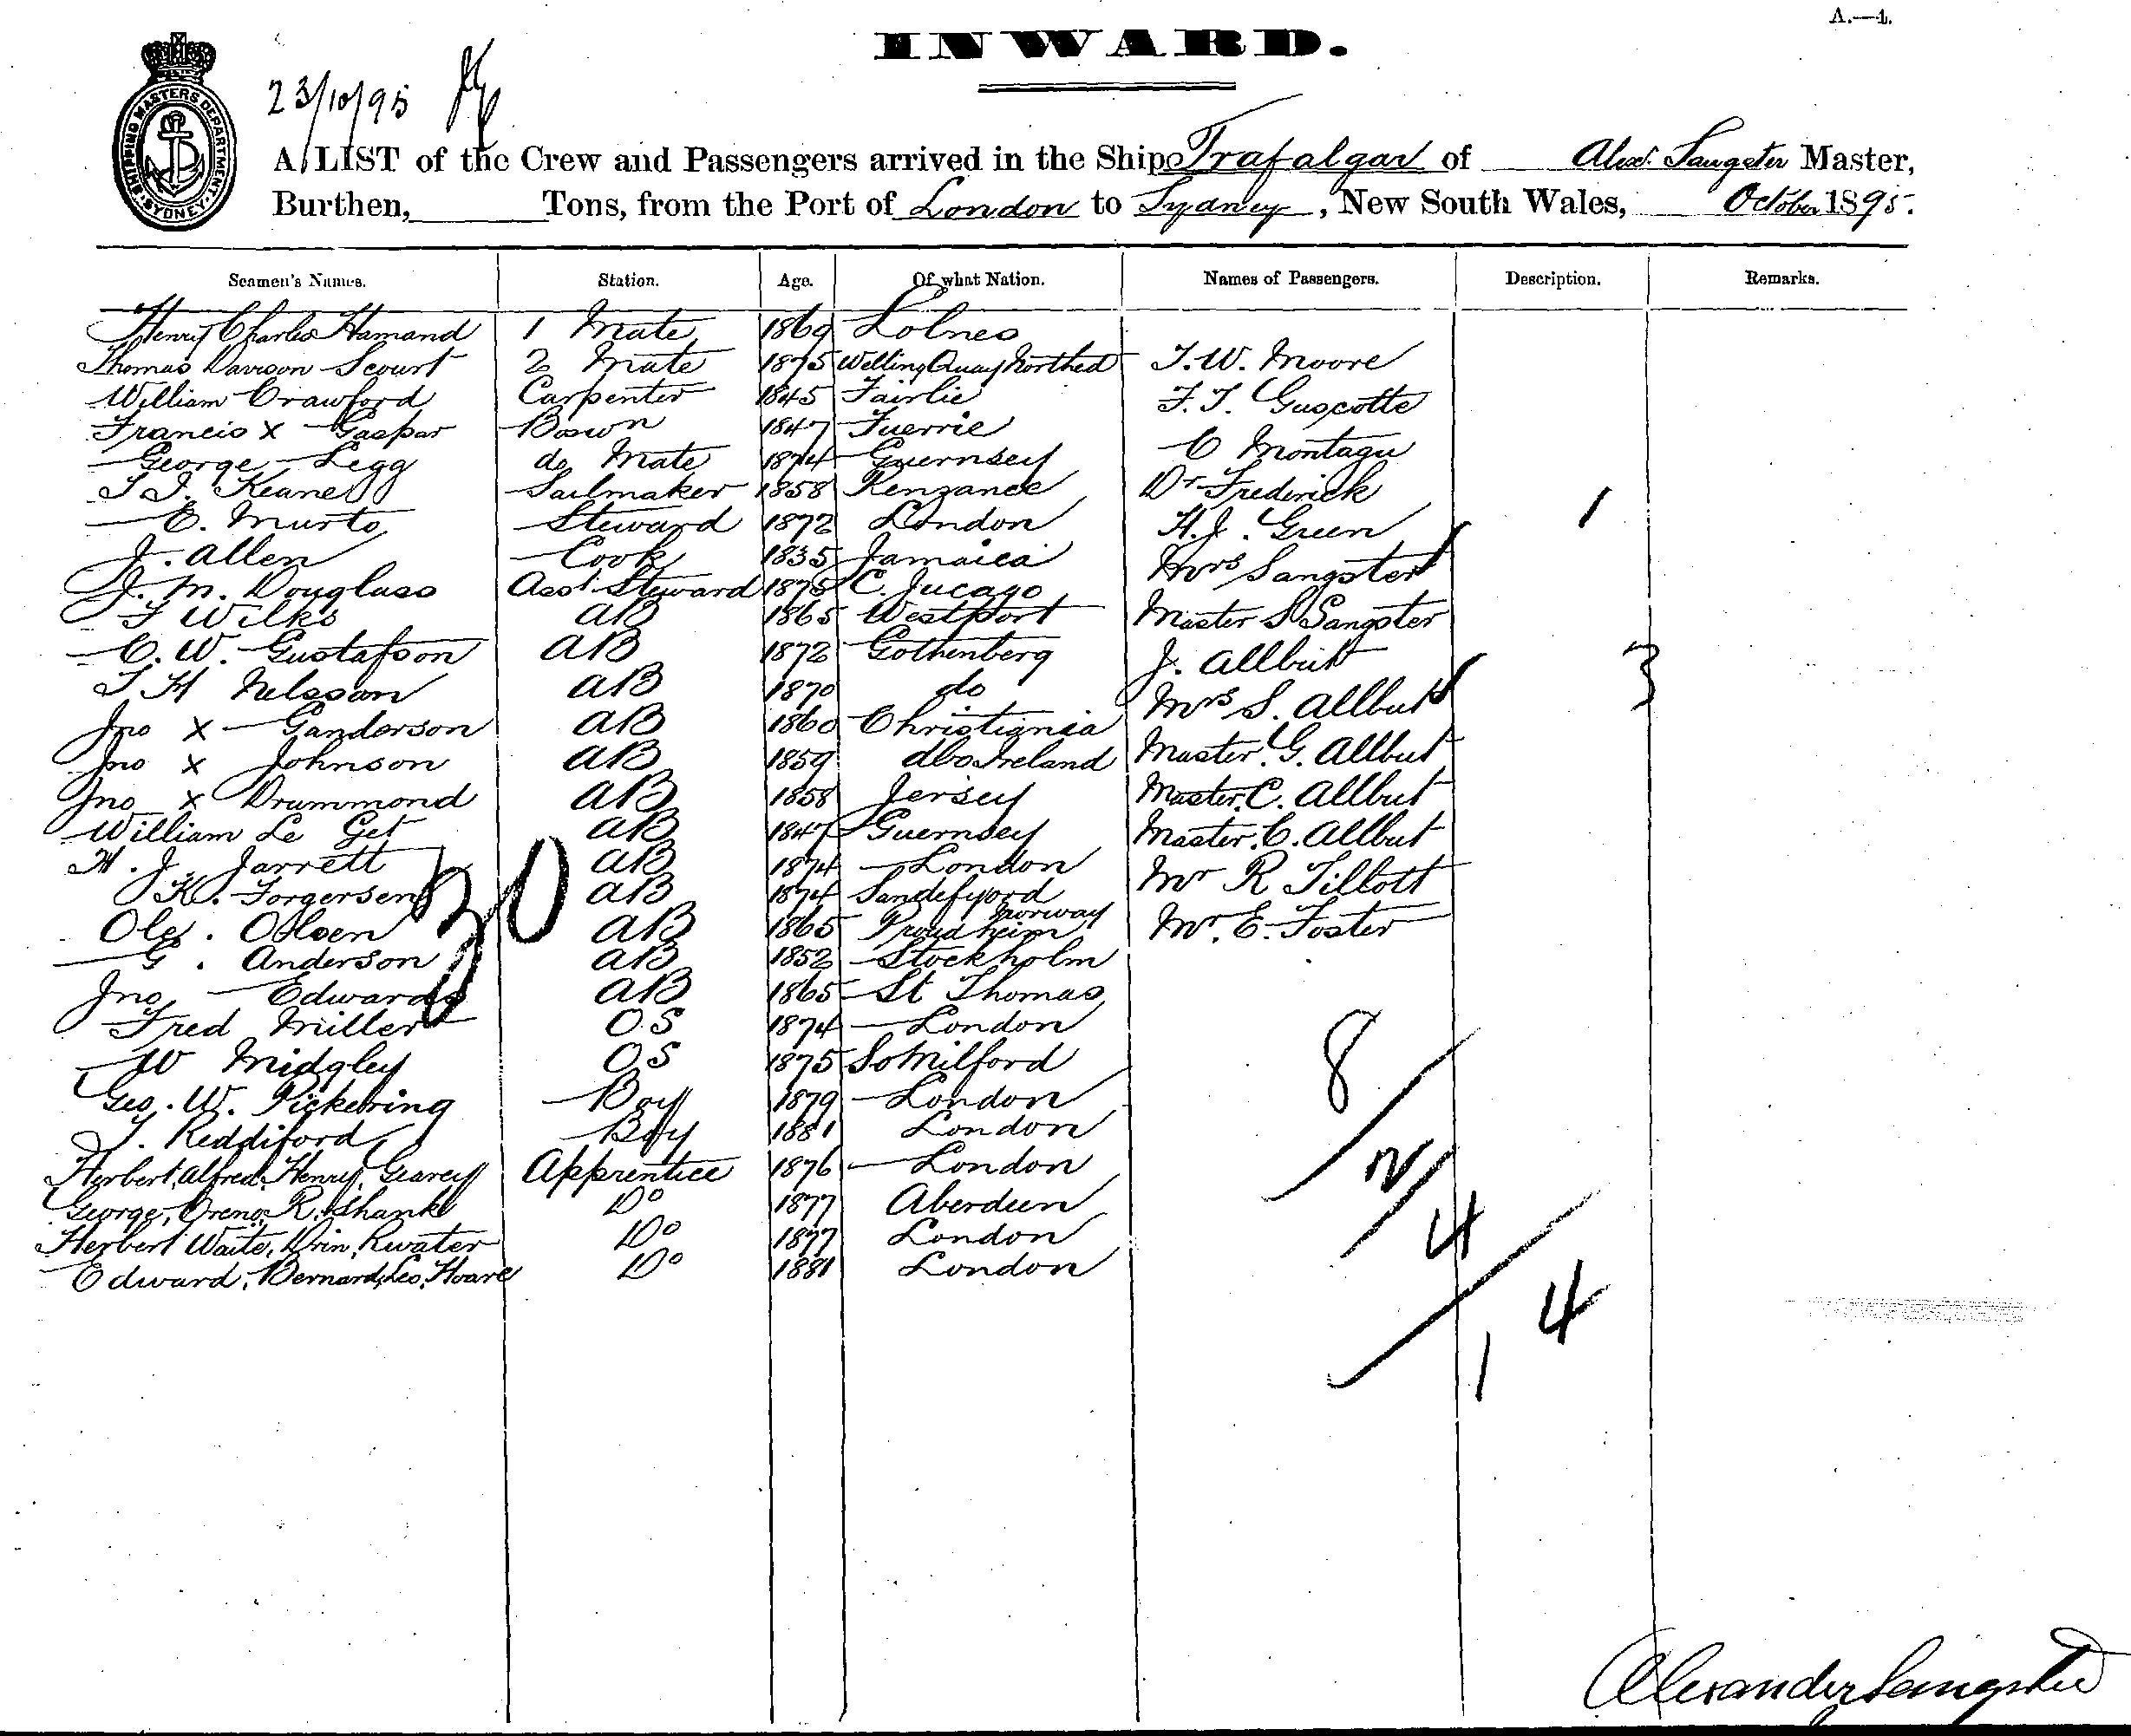 A.—1.
INWARD.
SHIPPING MASTERS DEPARTMENT. SYDNEY.
23/10/95
A LIST of the Crew and Passengers arrived in the Ship Trafalgar of Alexr. Sangster Master,
Burthen, Tons, from the Port of London to Sydney, New South Wales, October 1895.
Seamen's Names. Station. Age. Of what Nation. Names of Passengers. Description. Remarks.
Henry Charles Hamand 1 Mate 1869
Thomas Davison Scourt 2 Mate 1875 Welling Quay Northd T.W. Moore
William Crawford Carpenter 1845 Fairlie F.T. Guscotte
Francis X Gaspar Bosun 1847 C Montagu
George Legg do Mate 1874 Guernsey
T J. Keane Sailmaker 1858 Penzance Dr Frederick
E. Murto Steward 1872 London H.J. Green 1
J. Allen Cook 1835 Jamaica Mrs Sangster
J. M. Douglass Asst Steward 1875 Master S Sangster
T Wilks AB 1865 Westport
C. W. Gustafson AB 1872 Gothenberg J. Allbutt 3
T H Nelsson AB 1870 do Mrs S. Allbutt
Jno X Ganderson AB 1860 Christiania
Jno X Johnson AB 1859 Ireland Master. G. Allbut
Jno X Drummond AB 1858 Jersey Master. C. Allbut
William Le Get AB 1847 Guernsey Master. C. Allbut
H. J. Jarrett AB 1874 London Mr R Tillott
K. Torgersen AB 1874 Sandefjord
Ole. Olsen AB 1865 Norway Mr. E. Foster
30
G. Anderson AB 1852 Stockholm
Jno Edwards AB 1865 St Thomas
Fred Miller O.S 1874 London 8
W Midgley OS 1875 So Milford
Geo. W. Pickering Boy 1879 London
T. Reddiford Boy 1881 London
Herbert, Alfred, Henry, Gearey Apprentice 1876 London 2
George, R. Shank Do 1877 Aberdeen
Herbert Waite, Do 1877 London 4
Edward, Bernard, Leo, Hoare Do 1881 London
4
1
Alexander Sangster